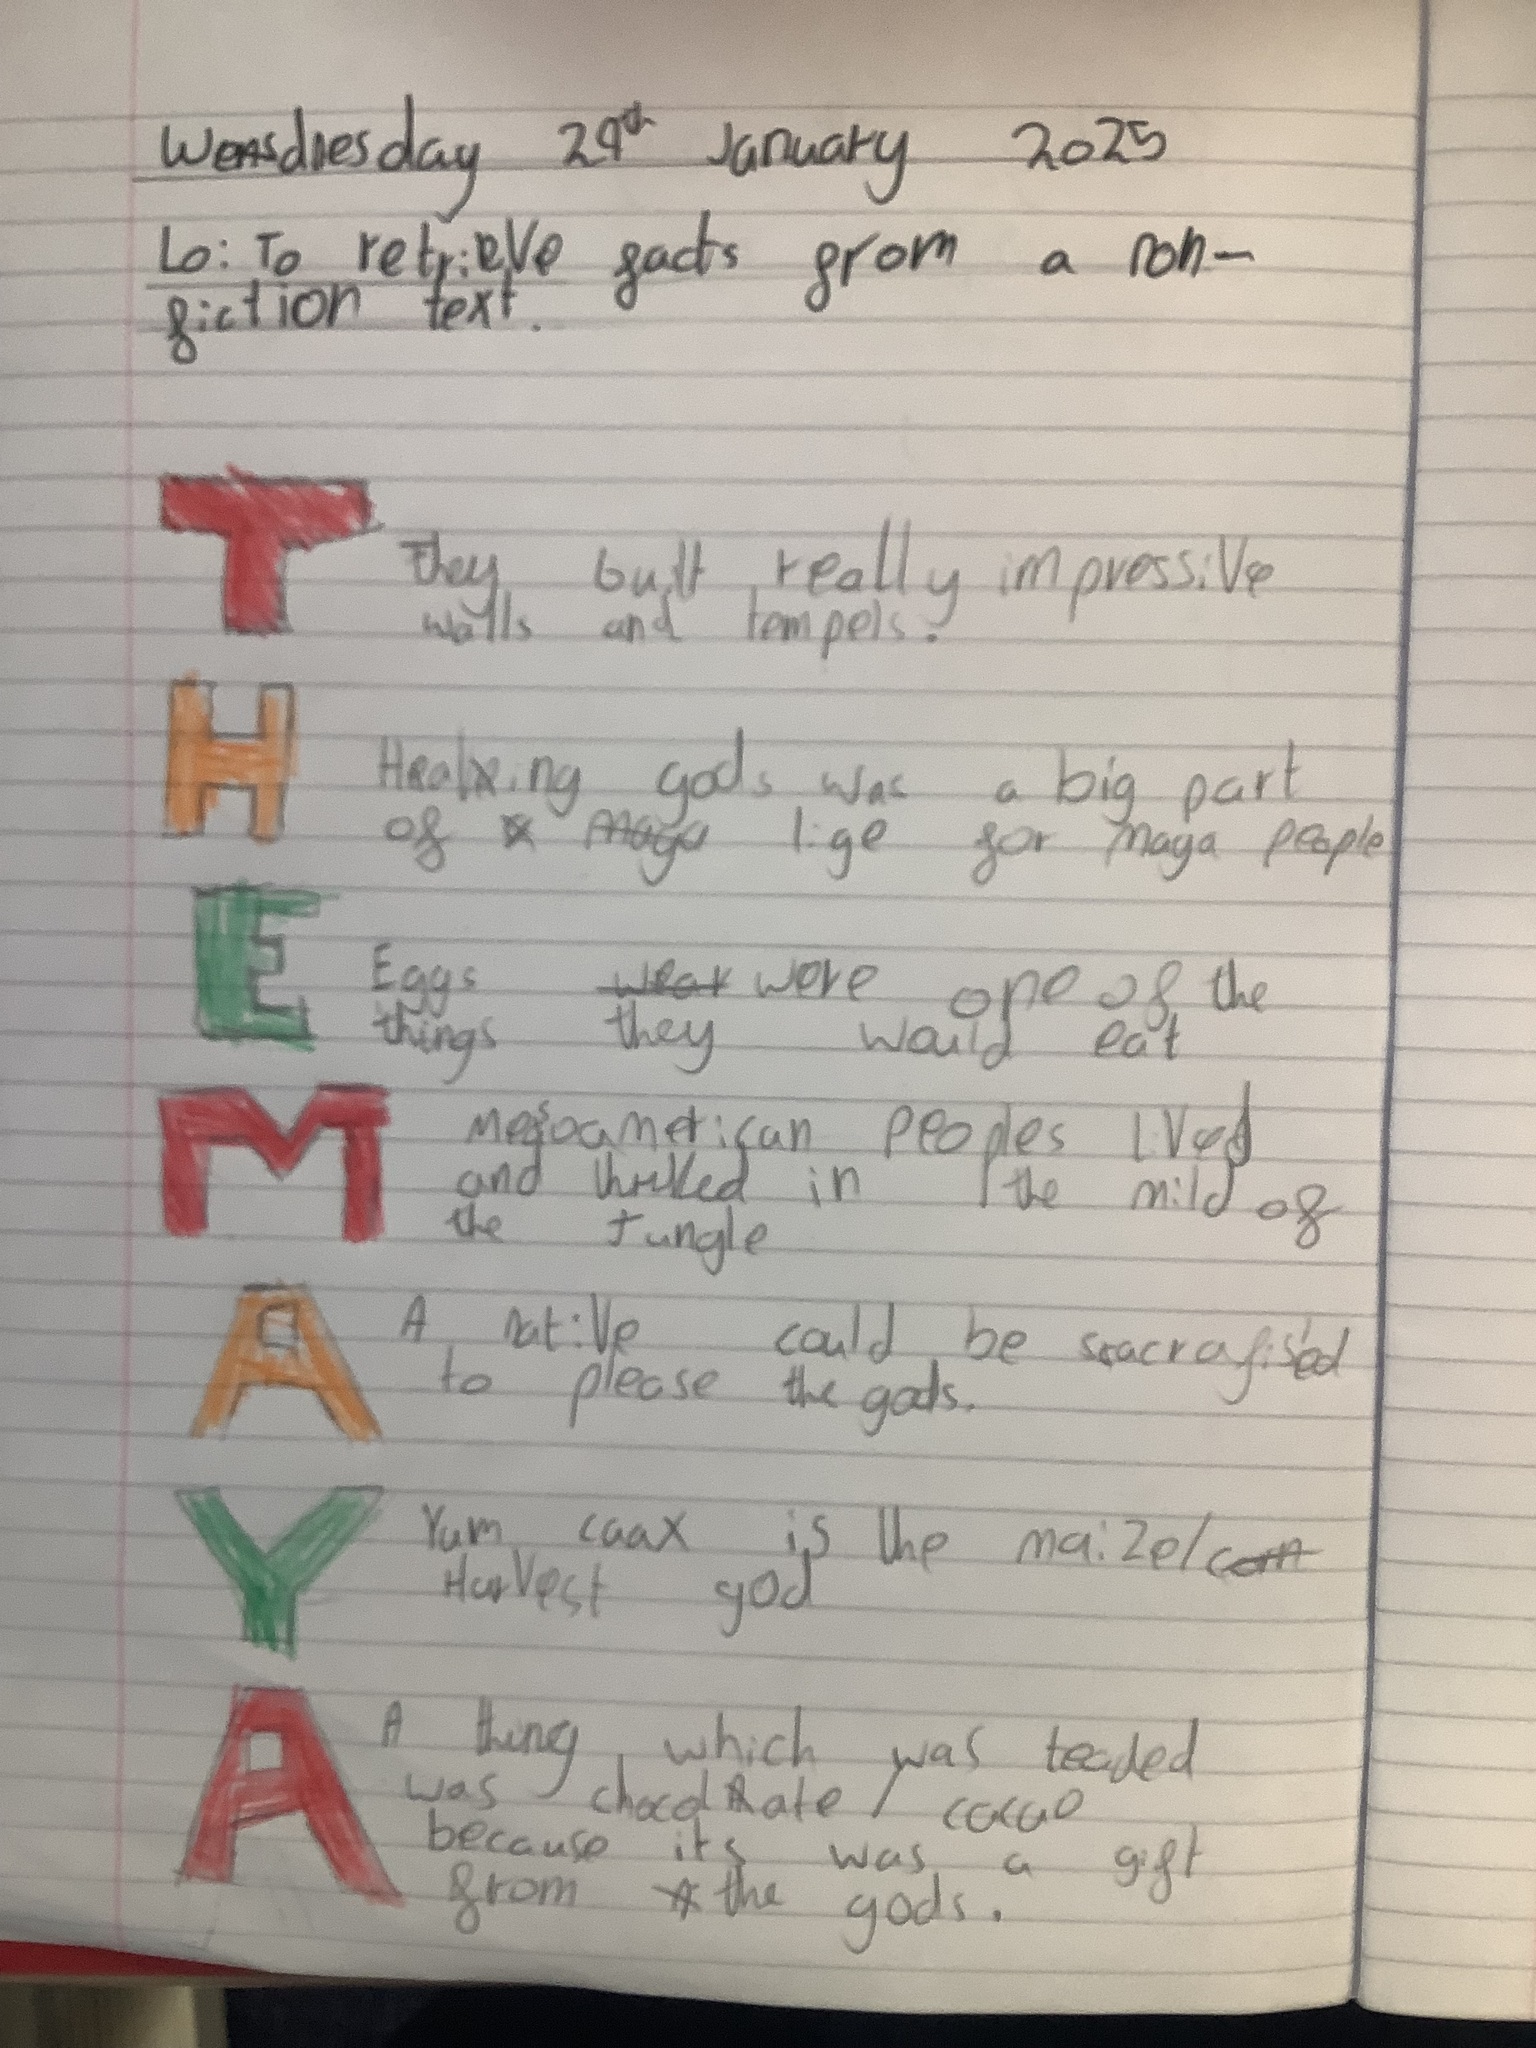 Wensdnesday 29th January 2025
Lo: To retrieve facts from a non-
fiction text.
T
They built really impressive
walls and tempels.
H
gods was a big part
of Maya life for Maya people
E
Eggs wear were one of the
things they would eat
M
Mesoamerican Peoples lived
and in the mild of
the Jungle
A
A native could be sacrafised
to please the gods.
Y
Yum caax is the maize/corn
Harvest god
A
A thing which was teaded
was chocolate / cacao
because its was a gift
from the gods.